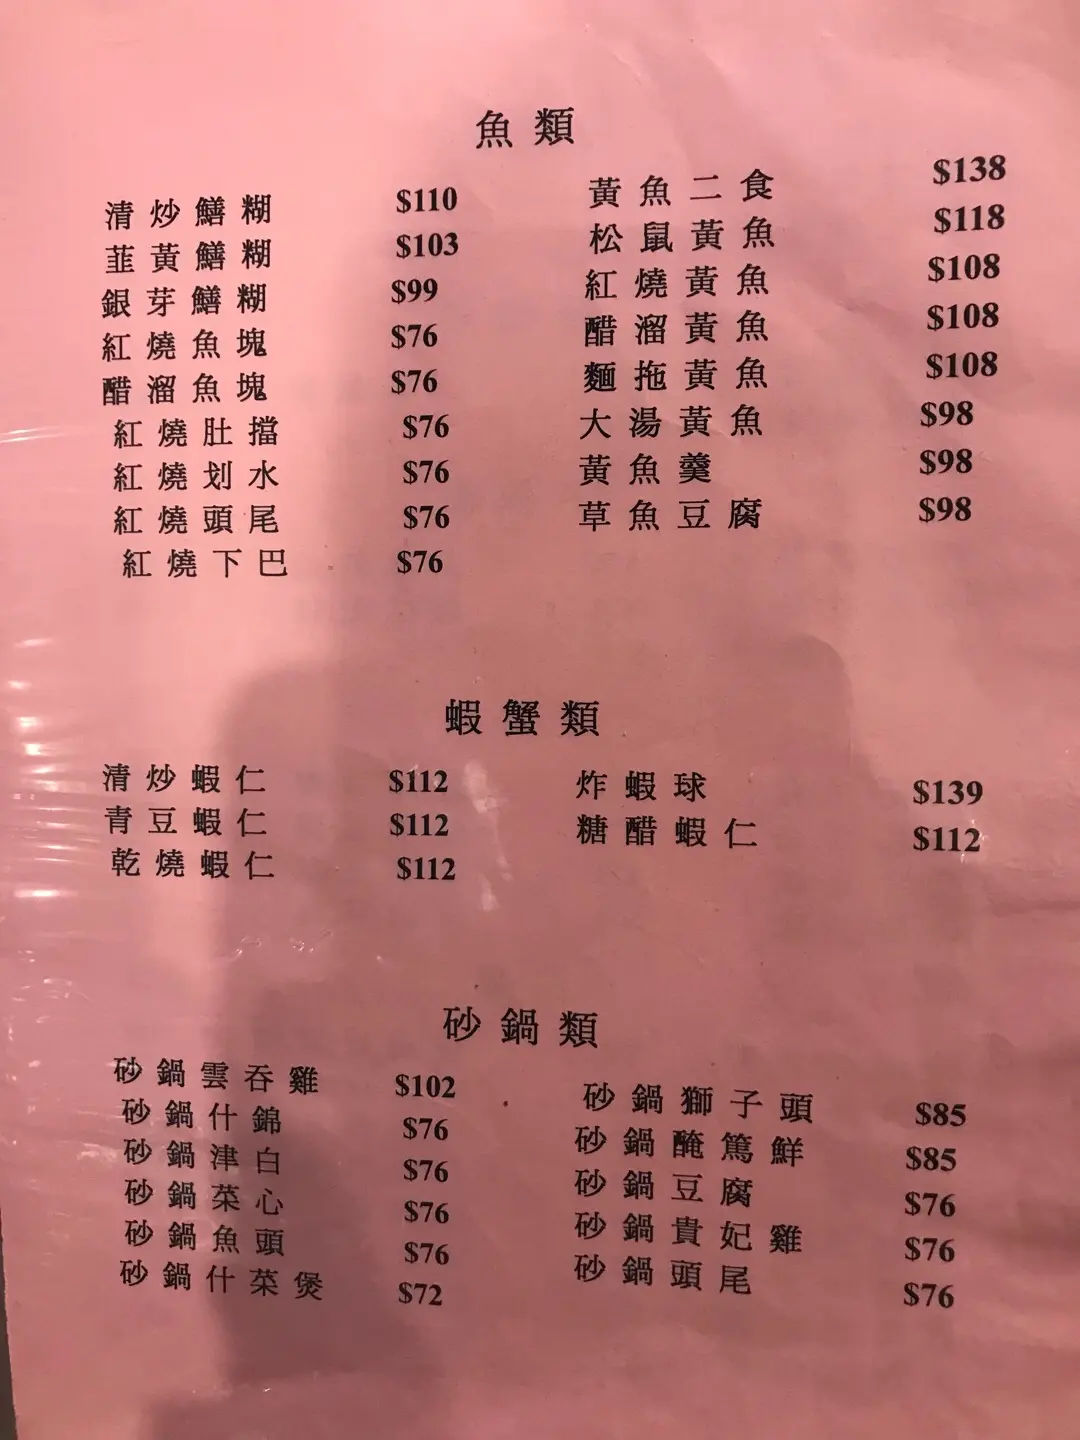 魚類
清炒鱔糊 $110
韮黃鱔糊 $103
銀芽鱔糊 $99
紅燒魚塊 $76
醋溜魚塊 $76
紅燒肚擋 $76
紅燒划水 $76
紅燒頭尾 $76
紅燒下巴 $76
黃魚二食 $138
松鼠黃魚 $118
紅燒黃魚 $108
醋溜黃魚 $108
麵拖黃魚 $108
大湯黃魚 $98
黃魚羹 $98
草魚豆腐 $98
蝦蟹類
清炒蝦仁 $112
青豆蝦仁 $112
乾燒蝦仁 $112
炸蝦球 $139
糖醋蝦仁 $112
砂鍋類
砂鍋雲吞雞 $102
砂鍋什錦 $76
砂鍋津白 $76
砂鍋菜心 $76
砂鍋魚頭 $76
砂鍋什菜煲 $72
砂鍋獅子頭 $85
砂鍋醃篤鮮 $85
砂鍋豆腐 $76
砂鍋貴妃雞 $76
砂鍋頭尾 $76